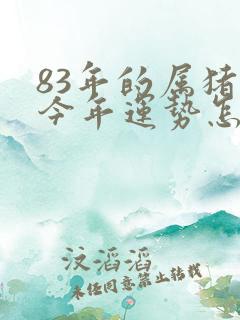 83年的属猪
今年运势怎
汶滔滔
未经同意禁止转载